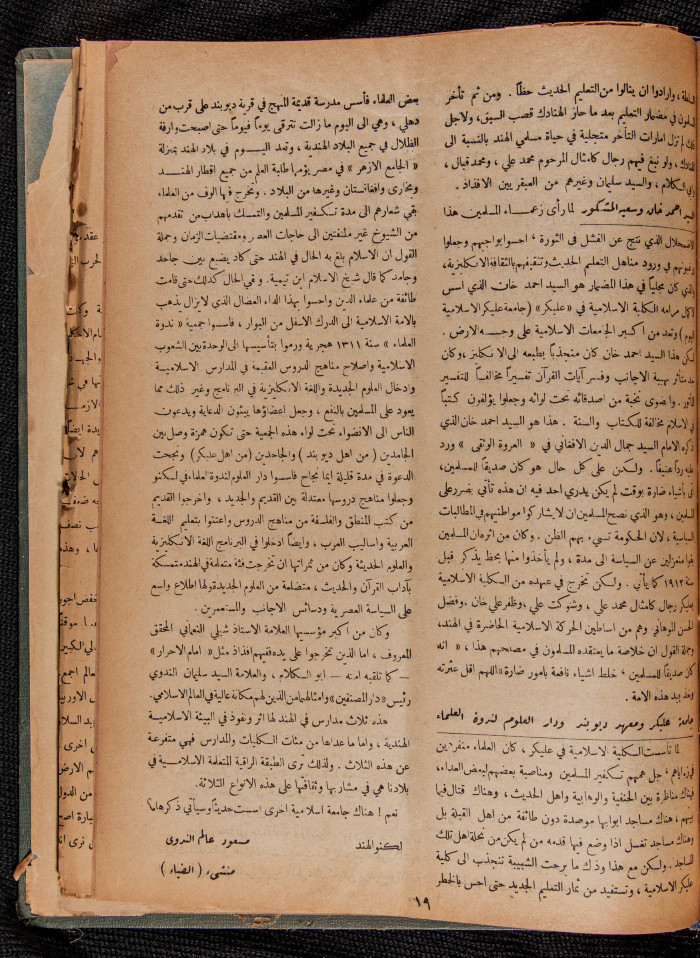 ، وارادوا ان ينالوا من التعليم الحديث حظاً . ومن ثم تأخر
في مضمار التعليم بعد ما حاز الهنادك قصب السبق، ولاجل
لم تزل امارات التأخر متجلية في حياة مسلمي الهند بالنسبة الى
، ولو نبغ فيهم رجال كامثال المرحوم محمد علي ، ومحمد اقبال ،
الكلام ، والسيد سليمان وغيرهم من العبقريين الافذاذ .
احمد خان وسعيه المشكور لما رأى زعماء المسلمين هذا
الاضمحلال الذي نتج عن الفشل في الثورة ، احسوا بواجبهم وجعلوا
في ورود مناهل التعليم الحديث وتثقيفهم بالثقافة الانكليزية،
الذي كان مجلياً في هذا المضمار هو السيد احمد خان الذي اسس
مرامه الكلية الاسلامية في « عليكر » (جامعة عليكر الاسلامية
اليوم) وتعد من اكبر الجامعات الاسلامية على وجه الارض .
لكن هذا السيد احمد خان كان منجذباً بطبعه الى الانكليز، وكان
متأثر بهيبة الاجانب وفسر آيات القرآن تفسيراً مخالفاً للتفسير
. واضوى نخبة من اصدقائه تحت لوائه وجعلوا يؤلفون كتباً
في الاسلام مخالفة للكتاب والسنة . هذا هو السيد احمد خان الذي
ذكره الامام السيد جمال الدين الافغاني في « العروة الوثقى » ورد
عليه رداً عنيفاً . ولكن على كل حال هو كان صديقاً للمسلمين،
اشياء ضارة بوقت لم يكن يدري احد فيه ان هذه تأتي بضرر على
المسلمين، وهو الذي نصح المسلمين ان لا يشاركوا مواطنيهم في المطالبات
السياسية ، لان الحكومة تسيء بهم الظن . وكان من اثره ان المسلمين
بقوا منعزلين عن السياسة الى مدة ، ولم يأخذوا منها بحظ يذكر قبل
سنة ١٩١٢ كما يأتي . ولكن تخرج في عهده من الكلية الاسلامية
بعليكر رجال كامثال محمد علي ، وشوكت علي ، وظفر علي خان، وفضل
الحسن الموهاني وهم من اساطين الحركة الاسلامية الحاضرة في الهند،
وجملة القول ان خلاصة ما يعتقده المسلمون في مصلحهم هذا ، « انه
كان صديقاً للمسلمين ، خلط اشياء نافعة بامور ضارة » اللهم اقل عثرته
وخذ بيد هذه الامة .
جامعة عليكر ومعهد ديوبند ودار العلوم لندوة العلماء
لما تأسست الكلية الاسلامية في عليكر ، كان العلماء منفردين
في زواياهم، جل همهم تكفير المسلمين ومناصبة بعضهم لبعض العداء،
فهناك مناظرة بين الحنفية والوهابية واهل الحديث، وهناك قتال فيما
بينهم، هناك مساجد ابوابها موصدة دون طائفة من اهل القبلة بل
وهناك مساجد تغسل اذا وضع فيها قدمه من لم يكن من نحلة اهل تلك
المساجد . ولكن مع هذا وذاك ما برحت الشبيبة تنجذب الى كلية
عليكر الاسلامية ، وتستفيد من ثمار التعليم الجديد حتى احس بالخطر
بعض العلماء فأسس مدرسة قديمة المنهج في قرية ديوبند على قرب من
دهلي ، وهي الى اليوم ما زالت تترقى يوماً فيوماً حتى اصبحت وارفة
الظلال في جميع البلاد الهندية ، وتعد اليوم في بلاد الهند بمنزلة
« الجامع الازهر » في مصر يؤمها طلبة العلم من جميع اقطار الهند
وبخارى وافغانستان وغيرها من البلاد . وتخرج فيها الوف من العلماء
بقي شعارهم الى مدة تكفير المسلمين والتمسك باهداب من تقدمهم
من الشيوخ غير ملتفتين الى حاجات العصر ومقتضيات الزمان وجملة
القول ان الاسلام بلغ به الحال في الهند حتى كاد يضيع بين جاحد
وجامد كما قال شيخ الاسلام ابن تيمية . وفي الحال كذلك حتى قامت
طائفة من علماء الدين واحسوا بهذا الداء العضال الذي لايزال يذهب
بالامة الاسلامية الى الدرك الاسفل من البوار ، فأسسوا جمعية « ندوة
العلماء » سنة ١٣١١ هجرية وراموا بتأسيسها الى الوحدة بين الشعوب
الاسلامية واصلاح مناهج الدروس العقيمة في المدارس الاسلامية
وادخال العلوم الجديدة واللغة الانكليزية في البرنامج وغير ذلك مما
يعود على المسلمين بالنفع ، وجعل اعضاؤها يبثون الدعاية ويدعون
الناس الى الانضواء تحت لواء هذه الجمعية حتى تكون همزة وصل بين
الجامدين ( من اهل ديوبند ) والجاحدين (من اهل عليكر) ونجحت
الدعوة في مدة قليلة ايما نجاح فأسسوا دار العلوم لندوة العلماء في لكنو
وجعلوا مناهج دروسها معتدلة بين القديم والجديد ، واخرجوا القديم
من كتب المنطق والفلسفة من مناهج الدروس واعتنوا بتعليم اللغة
العربية واساليب العرب ، وايضاً ادخلوا في البرنامج اللغة الانكليزية
والعلوم الحديثة وكان من ثمراتها ان تخرجت فئة متعلمة في الهند متمسكة
بآداب القرآن والحديث ، متضلعة من العلوم الجديدة ولها اطلاع واسع
على السياسة العصرية ودسائس الاجانب والمستعمرين .
وكان من اكبر مؤسسيها العلامة الاستاذ شبلي النعماني المحقق
المعروف ، اما الذين تخرجوا على يده ففيهم افذاذ مثل « امام الاحرار »
– كما تلقبه امته – ابو الكلام ، والعلامة السيد سليمان الندوي
رئيس « دار المصنفين » وامثالهما من الذين لهم مكانة عالية في العالم الاسلامي.
هذه ثلاث مدارس في الهند لها اثر ونفوذ في البيئة الاسلامية
الهندية ، واما ما عداها من مئات الكليات والمدارس فهي متفرعة
عن هذه الثلاث . ولذلك ترى الطبقة الراقية المتعلمة الاسلامية في
بلادنا هي في مشاربها وثقافتها على هذه الانواع الثلاثة .
نعم ! هناك جامعة اسلامية اخرى اسست حديثاً وسيأتي ذكرها.
لكنو الهند
مسعود عالم الندوى
منشىء ( الضياء )
١٩